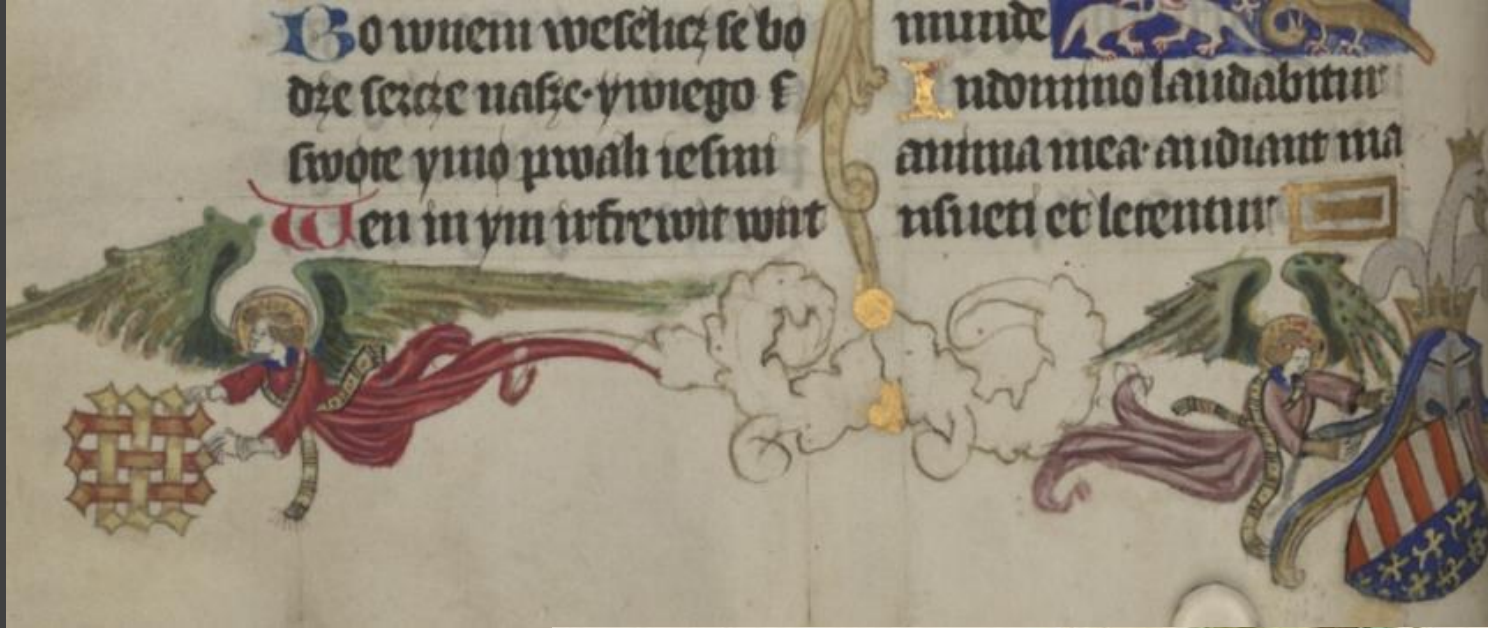 Bo wnem weſelicz ſe bo
dze ſercze naſze· ywiego ſ
ſwøte ymø pwali ieſmi
Wen in ym irfrewit wirt
munde
In domino laudabitur
anima mea· audiant ma
nſueti et letentur